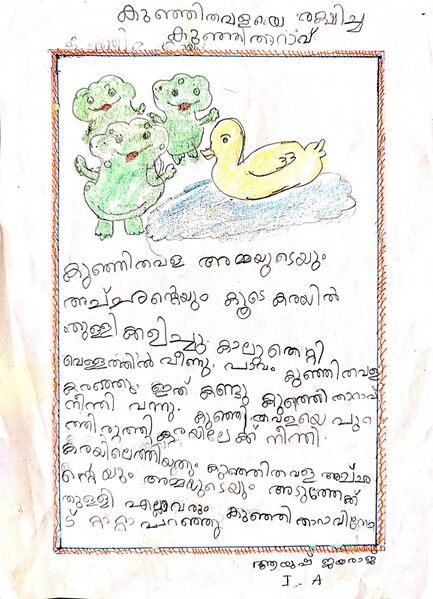 കുഞ്ഞിതവളയെ രക്ഷിച്ച
കുഞ്ഞിത്താറാവ്
കുഞ്ഞിതവള അമ്മയുടെയും
അച്ഛൻ്റെയും കൂടെ കരയിൽ
തുള്ളിക്കളിച്ചു. കാലുതെറ്റി
വെള്ളത്തിൽ വീണു. പാവം കുഞ്ഞിതവള
കരഞ്ഞു. ഇത് കണ്ടു കുഞ്ഞിതാറാവ്
നീന്തി വന്നു. കുഞ്ഞിതവളയെ പുറ
ത്തിരുത്തി കരയിലേക്ക് നീന്തി.
കരയിലെത്തിയതും കുഞ്ഞിതവള അച്ഛ
ൻ്റെയും അമ്മയുടെയും അടുത്തേക്ക്
തുള്ളി എല്ലാവരും കുഞ്ഞിതാറാവിനോ
ട് റ്റാറ്റാ പറഞ്ഞു
ആയുഷ് ജയരാജ്
I. A